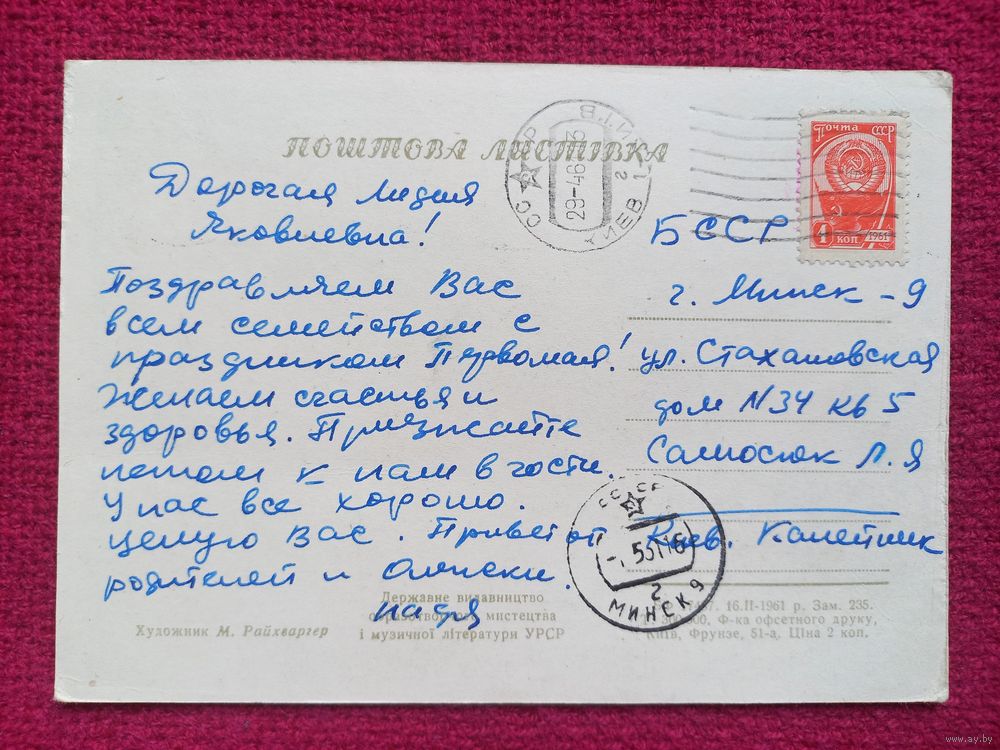 ПОШТОВА ЛИСТІВКА
Дорогая Лидия
Яковлевна!
Поздравляем Вас
всем семейством с
праздником Первомая!
Желаем счастья и
здоровья. Приезжайте
летом к нам в гости.
У нас все хорошо.
Целую Вас. Привет от
родителей и Оленьки.
Надя
Почта СССР
4 коп
1961
КИЕВ
БССР
г. Минск-9
ул. Стахановская
дом N34 кв 5
Самосюк Л.Я
Киев. Калейник
МИНСК 9
Художник М. Райхваргер
Державне видавництво
образотворчого мистецтва
і музичної літератури УРСР
16.II-1961 р. Зам. 235.
Ф-ка офсетного друку,
Київ, Фрунзе, 51-а. Ціна 2 коп.
www.ay.by